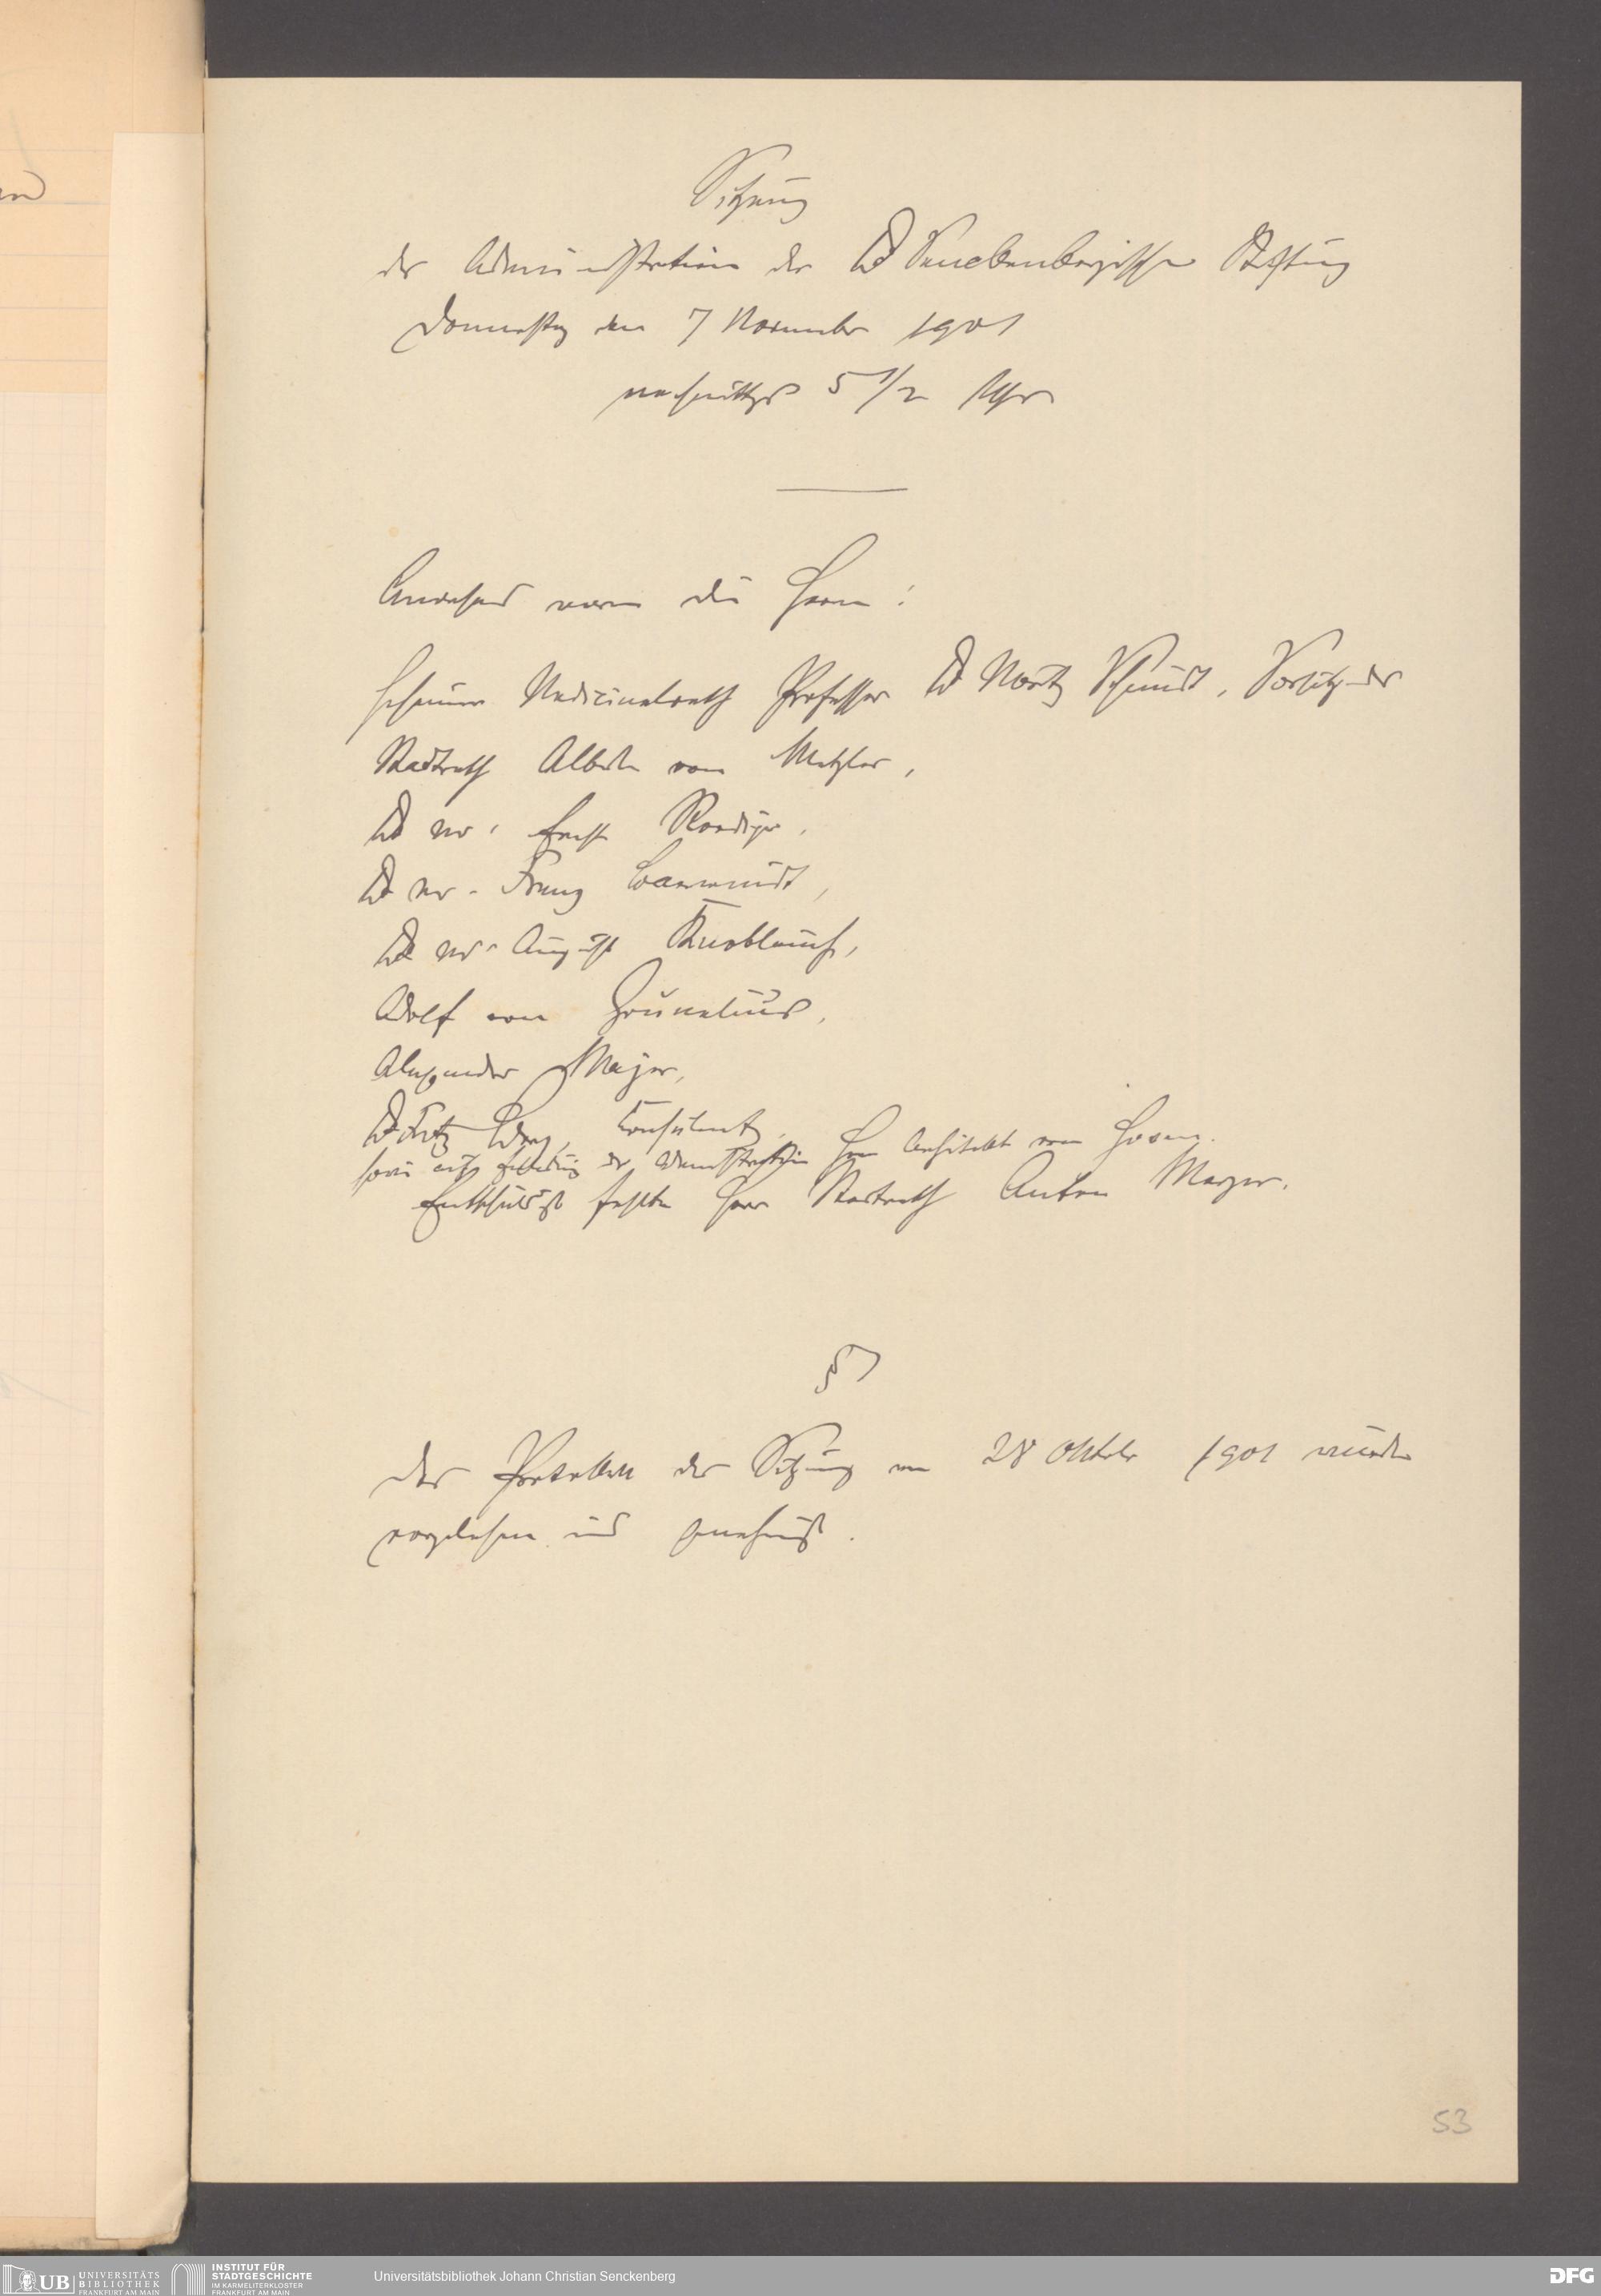 Sitzung
der Administration der Dr Senckenbergischen Stiftung
Donnerstag den 7 November 1901
nachmittags 5 1/2 Uhr
Anwesend waren die Herren:
Geheimer Medicinalrath Professor Dr Moritz Schmidt, Vorsitzender
Stadtrath Albert von Metzler,
Dr med. Ernst Roediger,
Dr med. Franz
Dr med. August Knoblauch,
Adolf von Grunelius,
Alexander Majer,
Dr Fritz Berg, Konsulent,
sowie auf Einladung der Administration Herr Architekt von Hoven.
Entschuldigt fehlte Herr Stadtrath Anton Meyer.
§
Das Protokoll der Sitzung vom 28 Oktober 1901 wurde
vorgelesen und genehmigt.
53
UB UNIVERSITÄTS
BIBLIOTHEK
FRANKFURT AM MAIN
INSTITUT FÜR
STADTGESCHICHTE
IM KARMELITERKLOSTER
FRANKFURT AM MAIN
Universitätsbibliothek Johann Christian Senckenberg
DFG